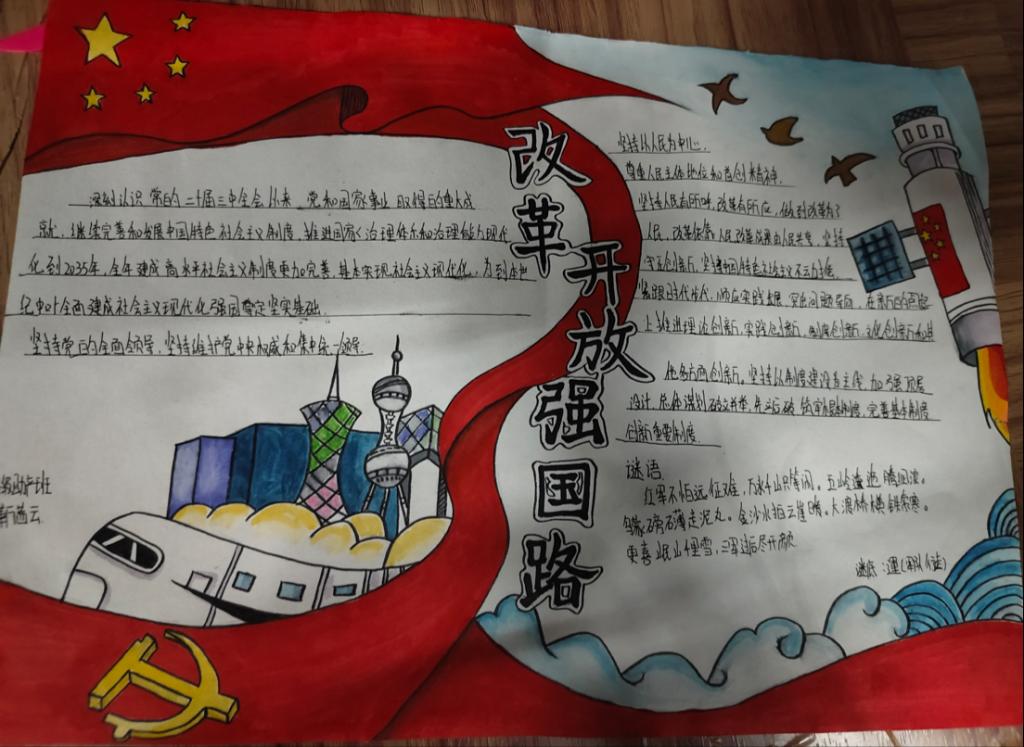 改革
开放
强国路
深刻认识党的二十届三中全会以来 党和国家事业取得的重大成
就，继续完善和发展中国特色社会主义制度，推进国家治理体系和治理能力现代
化到2035年，全年建成高水平社会主义制度更加完善，基本实现社会主义现代化，为到本世
纪中叶全面建成社会主义现代化强国奠定坚实基础
坚持党的全面领导，坚持维护党中央权威和集中统一领导
助产班
坚持以人民为中心
尊重人民主体地位和首创精神
坚持人民有所呼，改革有所应，做到改革为了
人民，改革依靠人民改革成果由人民共享，坚持
守正创新，坚持中国特色社会主义不动摇
紧跟时代步伐，顺应实践发展，突出问题导向，在新的起点
上推进理论创新，实践创新，制度创新，文化创新和其
他各方面创新，坚持以制度建设为主线，加强顶层
设计，总体谋划，破立并举，先立后破，完善基本制度
创新重要制度
谜语
红军不怕远征难，万水千山只等闲。五岭逶迤腾细浪。
乌蒙磅礴走泥丸。金沙水拍云崖暖。大渡桥横铁索寒。
更喜岷山千里雪，三军过后尽开颜
谜底：